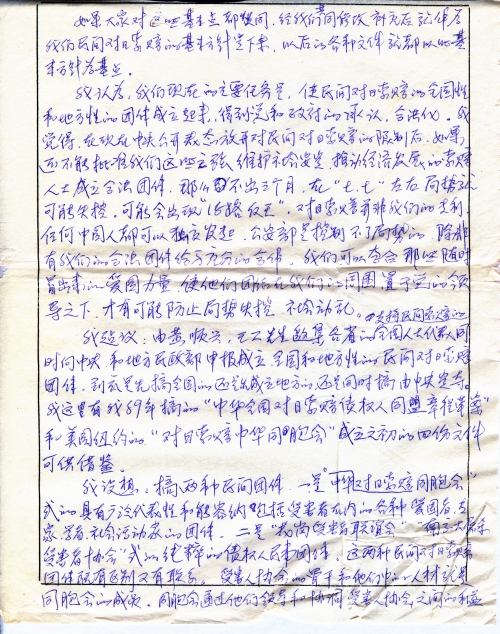 如果大家对这些基本点都赞同，经我们共同修改补充后就作为
我们民间对日索赔的基本方针定下来，以后的各种文件就都以此基
本方针为基点。
我认为，我们现在的主要任务是，使民间对日索赔的全国性
和地方性的团体成立起来，得到党和政府的承认，合法化。我
觉得，在现在中央公开表态放开对民间对日索赔的限制后，如果
还不能批准我们这些主张维护社会安定，推动经济发展的索赔
人士成立合法团体，那么不出三个月，在“七.七”左右局势就
可能失控，可能会出现 对日索赔并非我们的专利，
任何中国人都可以独立发起，公安部是控制不了局势的，除非
有我们的合法团体给予充分的合作，我们可以吸合那些随时
冒出来的爱国力量，使他们团结在我们的周围置于党的领
导之下，才有可能防止局势失控，社会动乱。
我提议：由黄顺兴，王工先生联集合省的全国人大代表同
支持民间索赔的
时向中央和地方民政部申报成立全国和地方性的民间对日索赔
团体，到底是先搞全国的还是先成立地方的还是同时搞由中央定夺。
我这里有我89年搞的“中华全国对日索赔债权人同盟章程草案”
和美国纽约的“对日索赔中华同胞会”成立之初的四份文件
可供借鉴。
我设想：搞两种民间团体，一是“中华对日索赔同胞会”
式的具有广泛代表性和能容纳包括受害者在内的各种爱国者专
家学者社会活动家的团体，二是
受害者协会”式的纯粹的债权人民间团体，这两种民间对日索赔
团体既有区别又有联系。受害人协会的骨干和他们中的人材就是
同胞会的成员，同胞会通过他们领导和协调受害人协会之间的利益